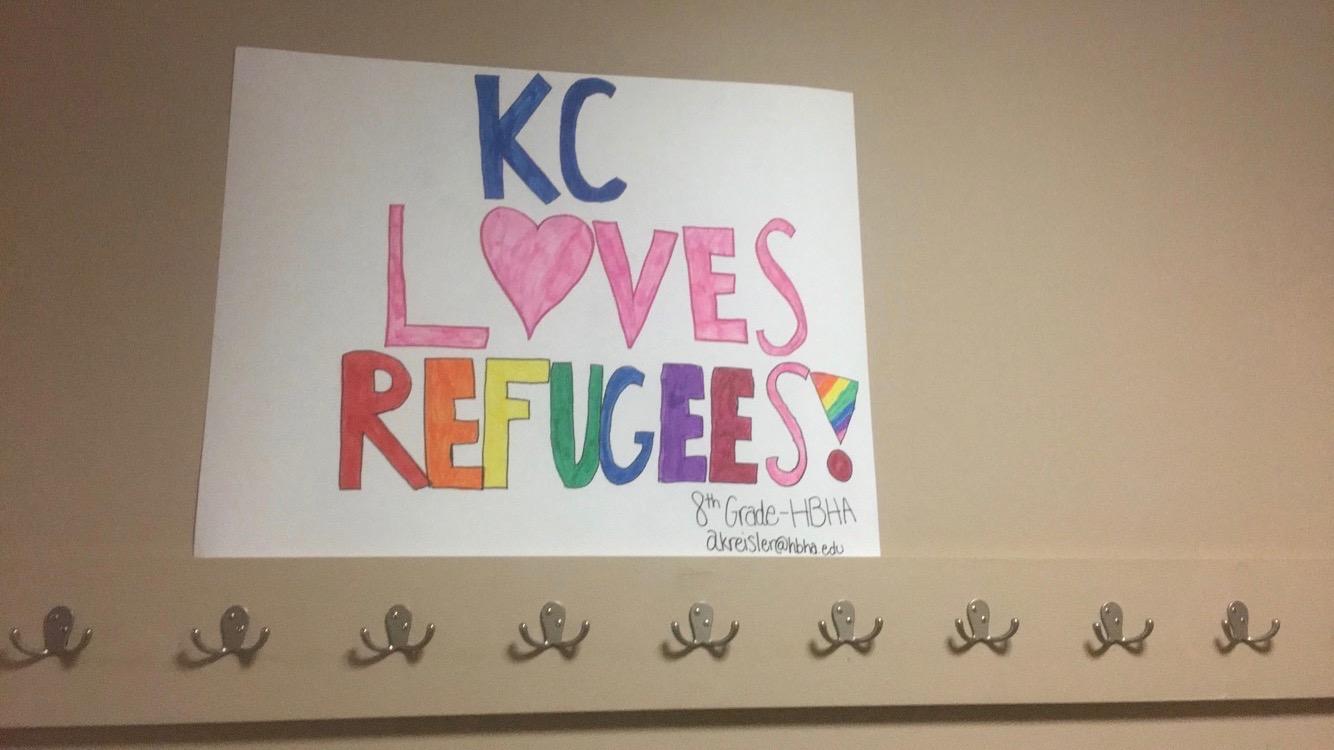 KC
L♥VES
REFUGEES!
8th Grade-HBHA
akreisler@hbha.edu